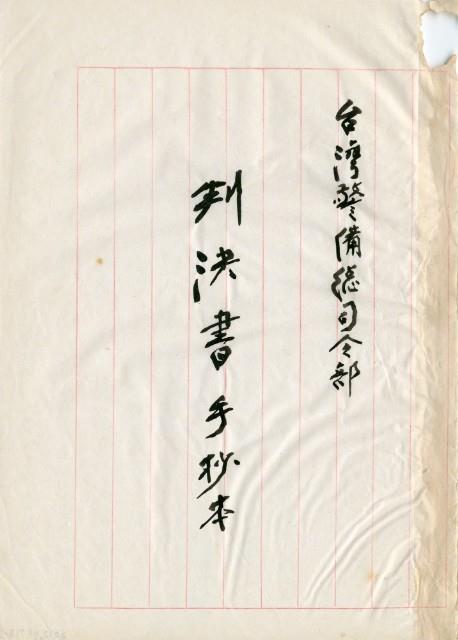 台灣警備總司令部
判決書手抄本